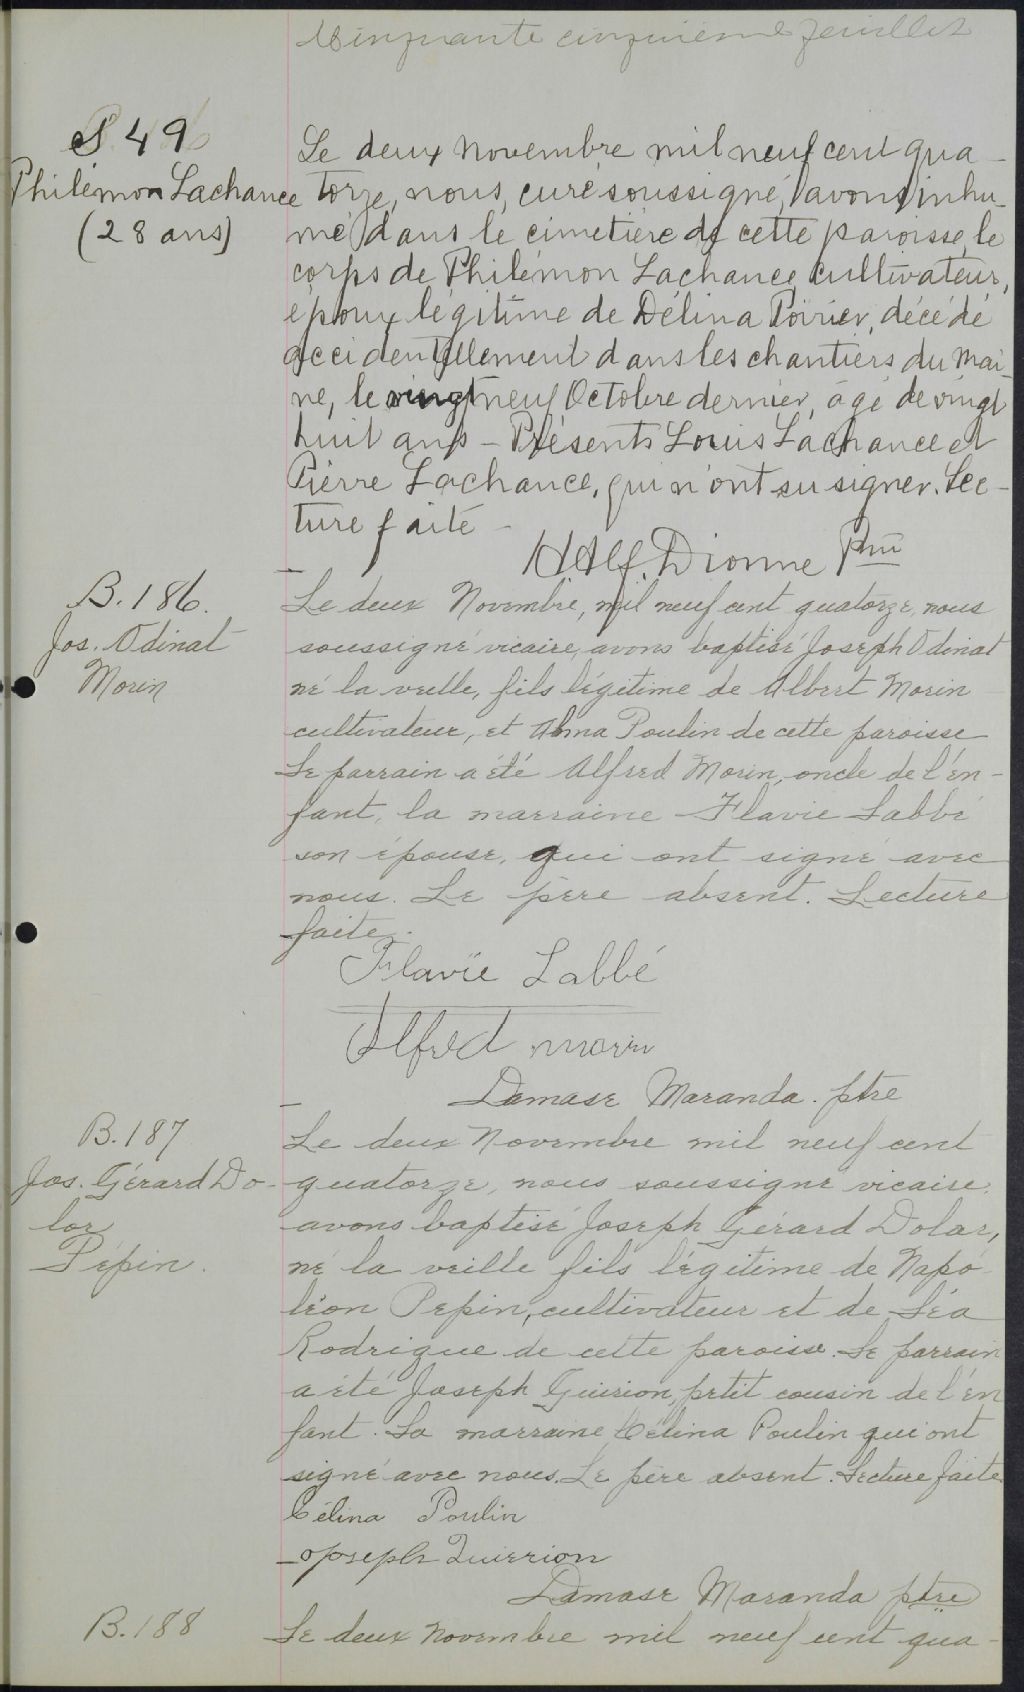 Cinquante cinquième feuillet
S. 49
Philémon Lachance
(28 ans)
Le deux Novembre mil neuf cent qua-
torze, nous, curé soussigné, avons inhu-
mé dans le cimetière de cette paroisse, le
corps de Philémon Lachance, cultivateur,
époux légitime de Délina Poirier, décédé
accidentellement dans les chantiers du Mai-
ne, le vingt neuf Octobre dernier, âgé de vingt
huit ans - Présents Louis Lachance et
Pierre Lachance, qui n'ont su signer. Lec-
ture faite -
H Alf. Dionne Ptre
B. 186.
Jos. Odinat
Morin
Le deux Novembre, mil neuf cent quatorze, nous
soussigné vicaire, avons baptisé Joseph Odinat
né la veille, fils légitime de Albert Morin
cultivateur, et Alma Poulin de cette paroisse
Le parrain a été Alfred Morin, oncle de l'en-
fant, la marraine Flavie Labbé
son épouse, qui ont signé avec
nous. Le père absent. Lecture
faite.
Flavie Labbé
Alfred morin
Damase Maranda. ptre
B. 187
Jos. Gérard Do-
lor
Pépin.
Le deux Novembre mil neuf cent
quatorze, nous soussigné vicaire,
avons baptisé Joseph Gérard Dolar,
né la veille fils légitime de Napo-
léon Pepin, cultivateur et de Léa
Rodrigue de cette paroisse. Le parrain
a été Joseph Quirion, petit cousin de l'en
fant. La marraine Célina Poulin qui ont
signé avec nous. Le père absent. Lecture faite.
Célina Poulin
Joseph Quirrion
Damase Maranda ptre
B. 188
Le deux Novembre mil neuf cent qua-